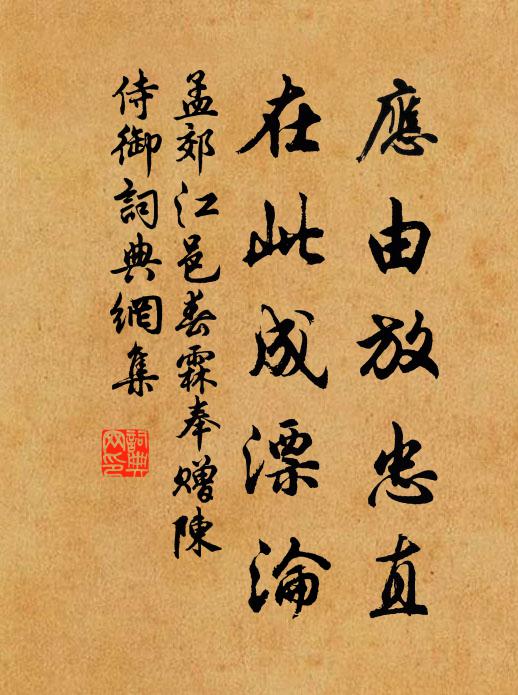 應由放忠直
在此成漂淪
孟郊江邑春霖奉贈陳
侍御詞典網集
詞典
网印